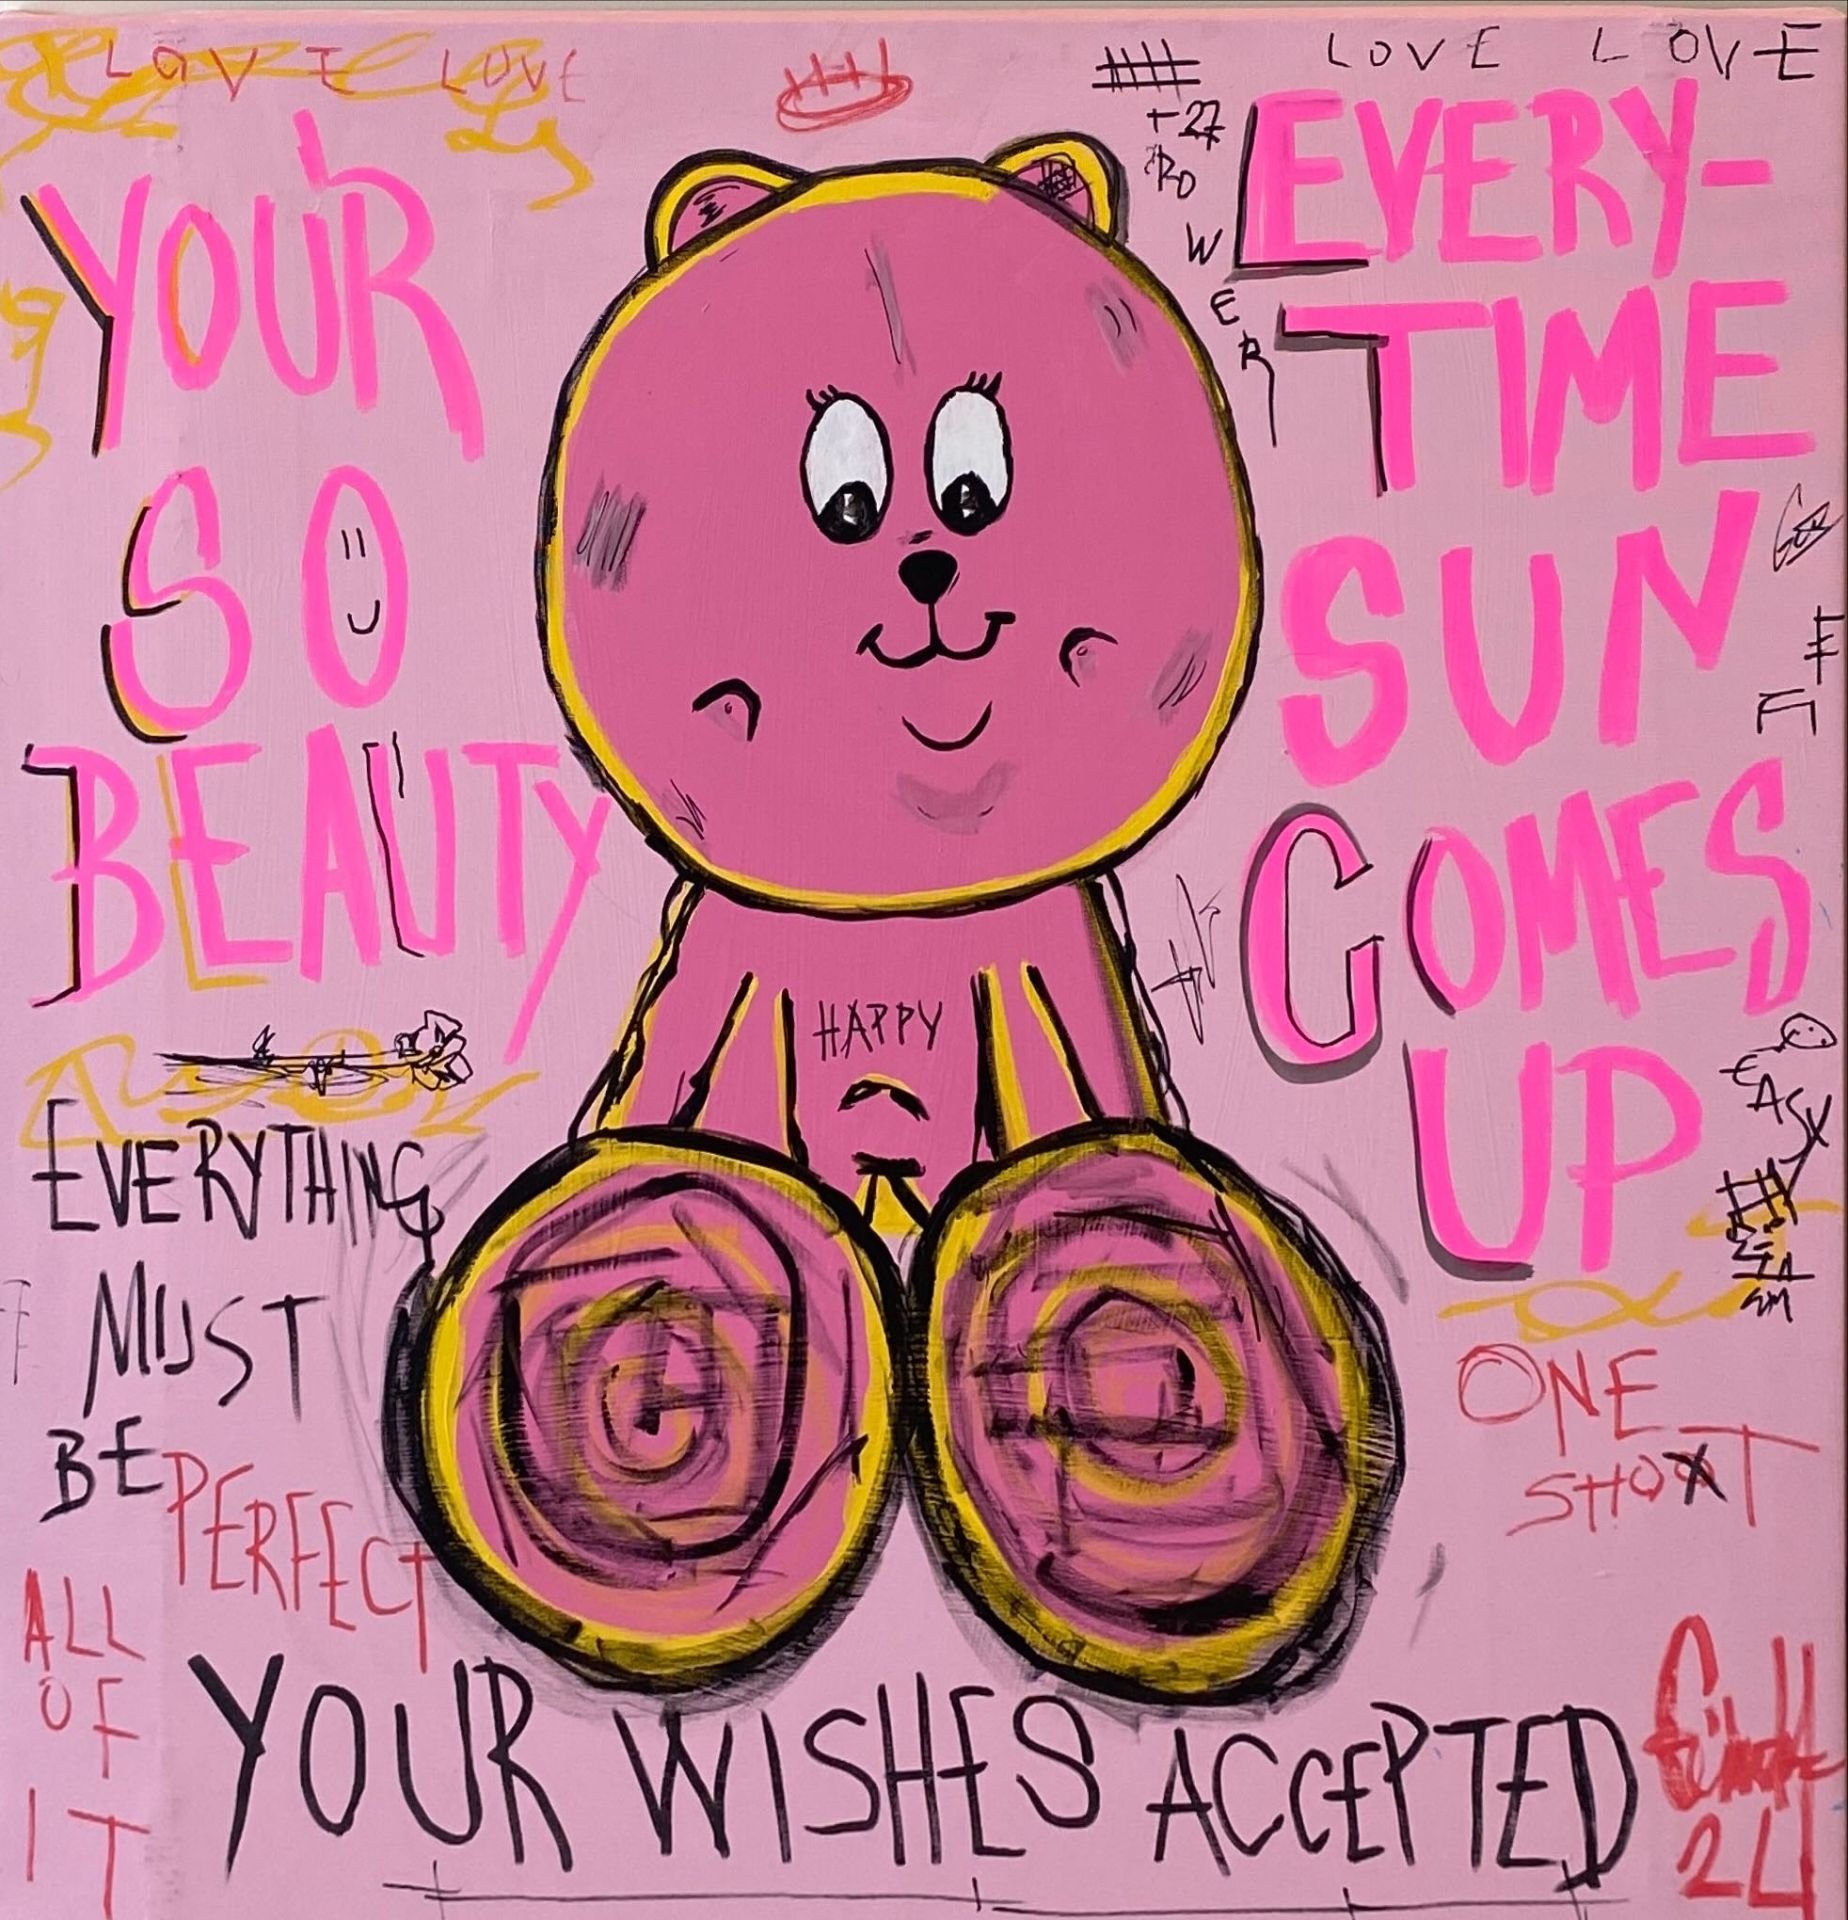 LOVE LOVE
LOVE LOVE
+27
POWER
YOUR
SO
BEAUTY
EVERY-
TIME
SUN
COMES
UP
HAPPY
EASY
EVERYTHING
MUST
BE PERFECT
ALL
OF
IT
ONE
SHOT
YOUR WISHES ACCEPTED
24